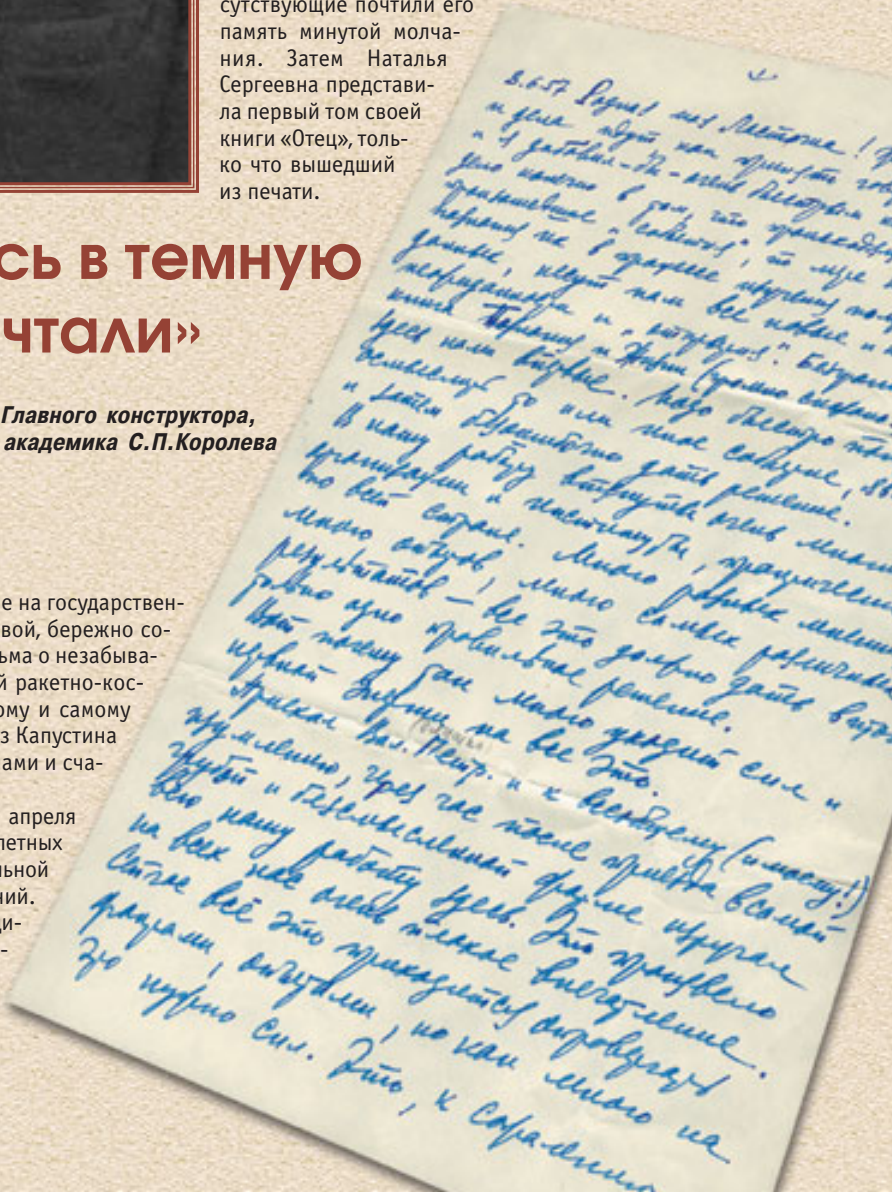 сутствующие почтили его
память минутой молча-
ния. Затем Наталья
Сергеевна представи-
ла первый том своей
книги «Отец», толь-
ко что вышедший
из печати.
сь в темную
чтали»
Главного конструктора,
академика С.П.Королева
е на государствен-
вой, бережно со-
ьма о незабыва-
й ракетно-кос-
ому и самому
з Капустина
ами и сча-
апреля
летных
льной
ний.
ци-
-
8.6.57 Родная моя Ласточка!
и дела идут, как
и я добавил – очень быстрым
дело конечно в том, что
произошедшее "событие", то
в процессе изучения
данные, несут нам все новые и
неожиданности и "
книга Природы и Жизни (
здесь нами впервые. Надо быстро
то или иное событие,
и затем безошибочно дать решение.
В нашу работу втянуты очень много
организации и институты, практически
по всей стране. Много разных мнений
много опытов, много самых различных
результатов — все это должно дать
только одно правильное решение.
Вот почему так много уходит сил и
нервной энергии на все это.
Приехал Вал. Петр. и к всеобщему (и моему!)
изумлению, через час после приезда в самой
грубой и бессмысленной форме изругал
всю нашу работу здесь. Это произвело
на всех нас очень плохое впечатление.
Сейчас всё это приходится опровергать
фактами, опытами, но как много на
это нужно сил. Это, к сожалению